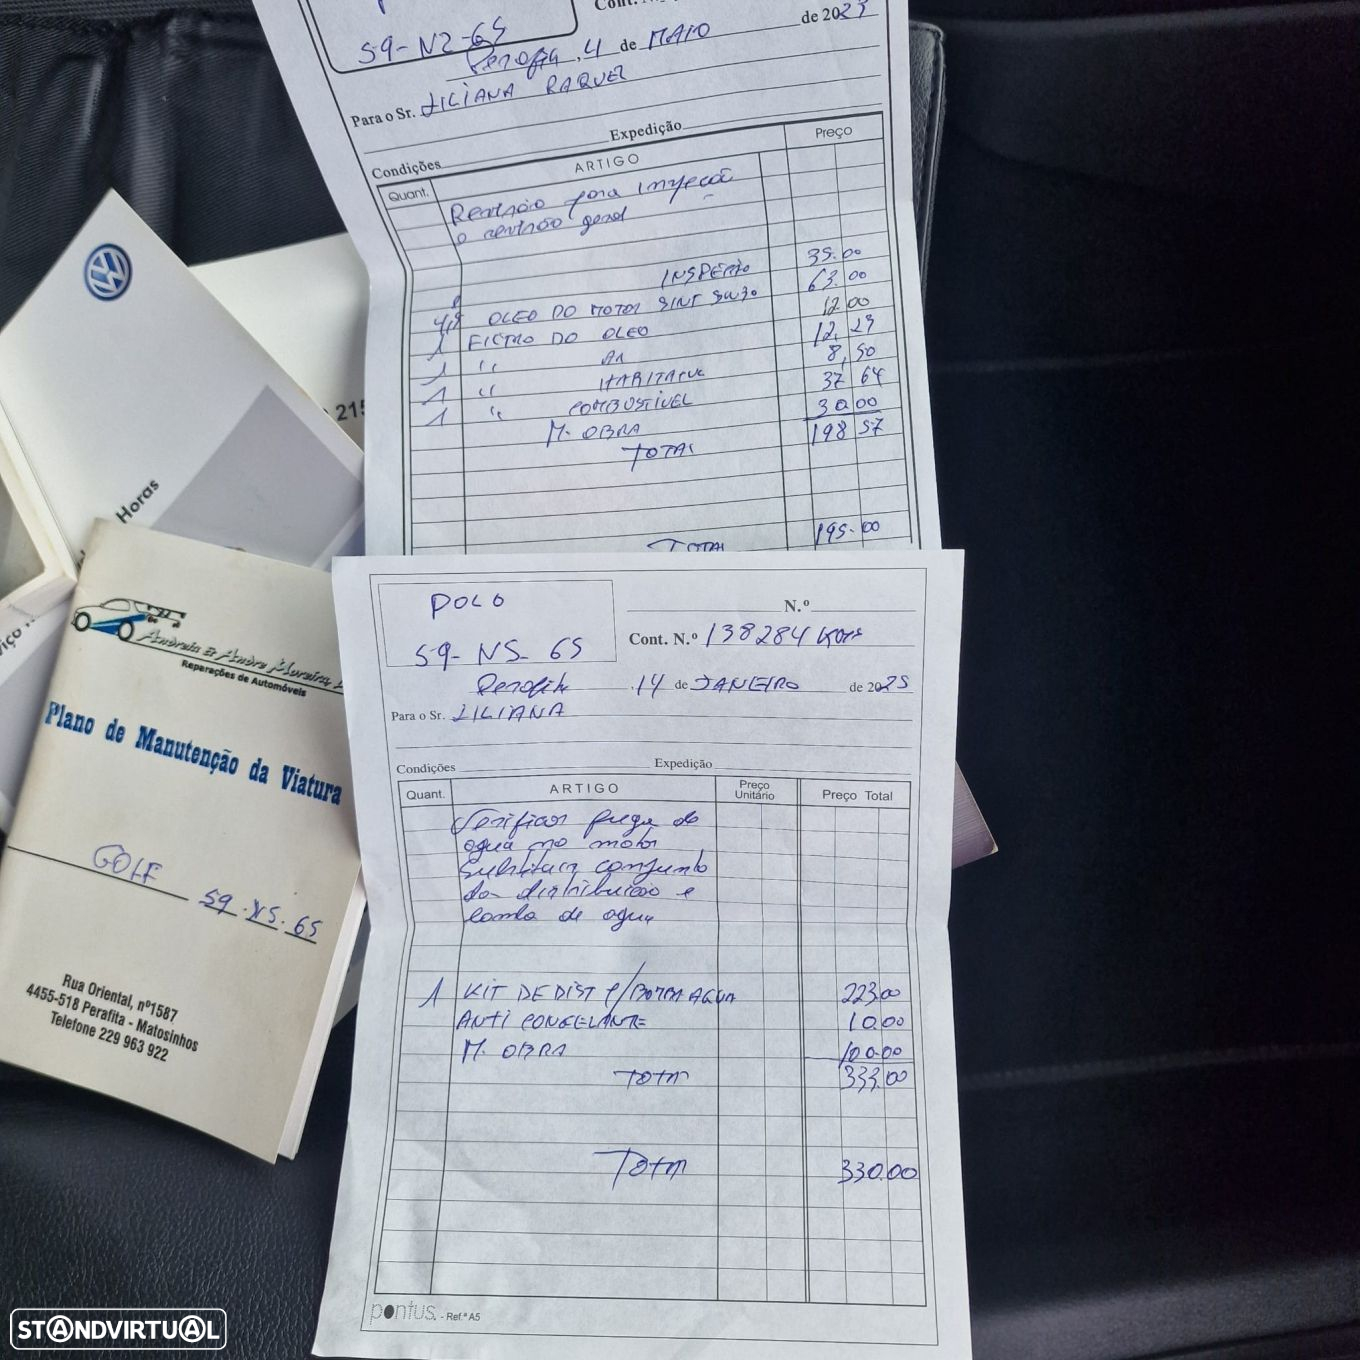 Cont. N.
59-NZ-65
Perafita, 4 de MAIO de 2023
Para o Sr. LILIANA RAQUEL
Condições Expedição
Quant. ARTIGO Preço
Revisão para inspeção
e revisão geral
INSPEÇÃO 35.00
4,5 OLEO DO MOTOR SINT 5W30 63.00
1 FILTRO DO OLEO 12 00
1 " AR 12,29
1 " HABITACUL 8,50
1 " COMBUSTIVEL 37 64
M. OBRA 30 00
TOTAL 198 57
TOTAL 195.00
Horas
215
Andreia & André Moreira
Reparações de Automóveis
Plano de Manutenção da Viatura
GOLF 59.NS.65
Rua Oriental, nº1587
4455-518 Perafita - Matosinhos
Telefone 229 963 922
POLO
59-NS-65
N.º
Cont. N.º 138284 Kms
Perafita, 14 de JANEIRO de 2025
Para o Sr. LILIANA
Condições Expedição
Quant. ARTIGO Preço Unitário Preço Total
Verificar fuga de
agua no motor
Substituir conjunto
da distribuição e
bomba de agua
1 KIT DE DIST C/BOMBA AGUA 223.00
ANTI CONGELANTE 10.00
M. OBRA 100.00
TOTAL 333.00
TOTAL 330.00
pontus. - Ref.ª A5
STANDVIRTUAL